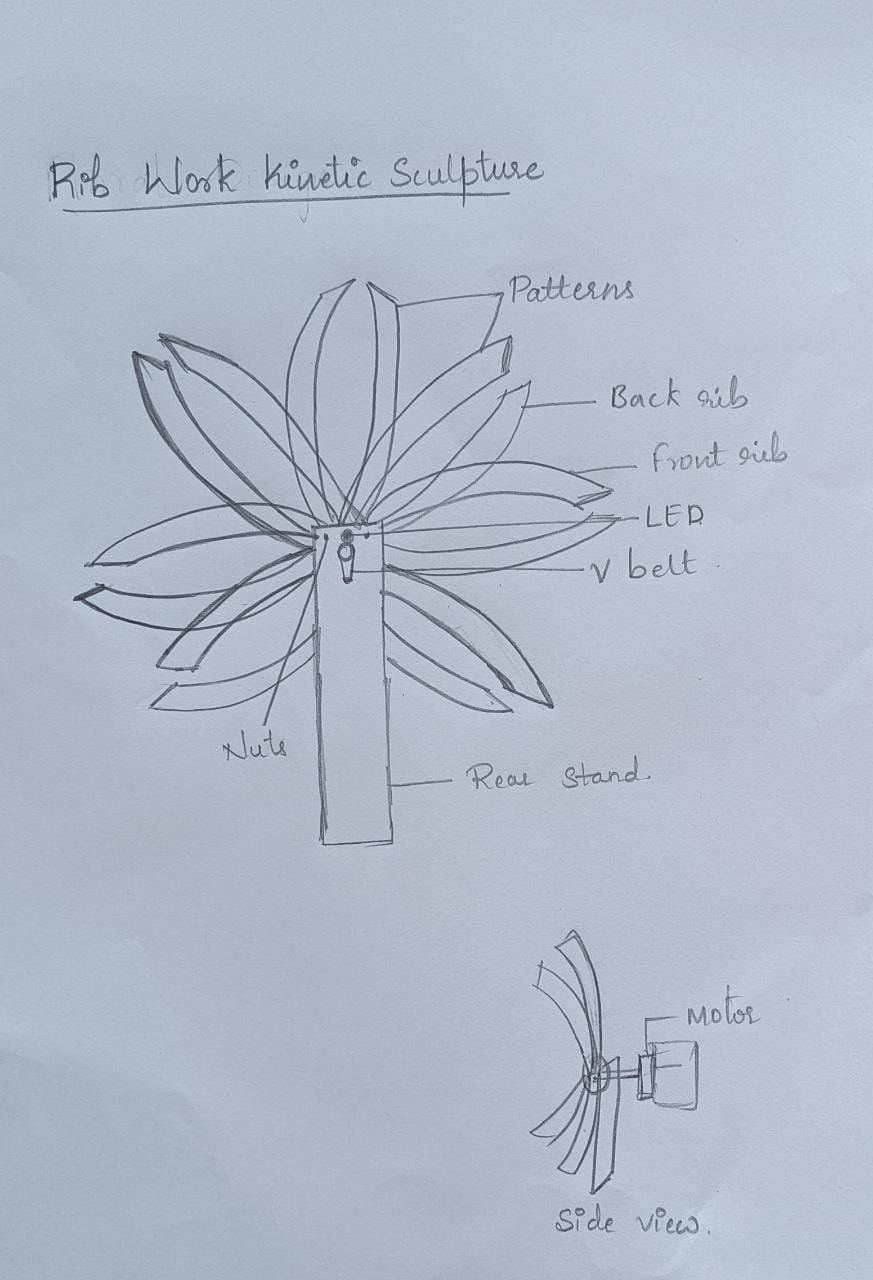 Rib Work Kinetic Sculpture
Patterns
Back rib
Front rib
LED
V belt
Nuts
Rear stand.
Motor
Side view.